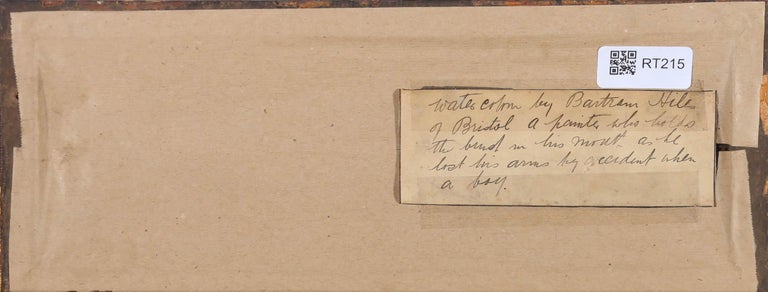 RT215
Watercolour by Bartram Hiles
of Bristol a painter who holds
the brush in his mouth as he
lost his arms by accident when
a boy.